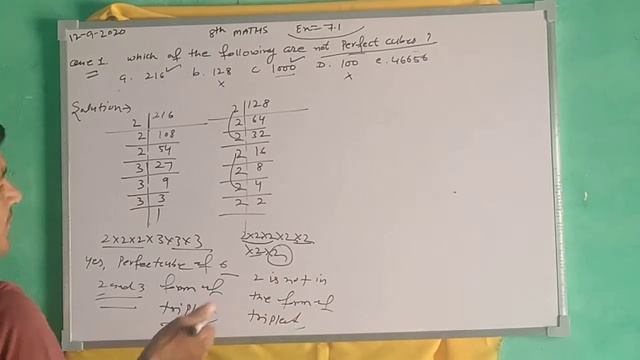 12-9-2020 8th MATHS Ex=7.1
Que 1. which of the following are not Perfect cubes ?
a. 216 ✓ b. 128 c. 1000 ✓ D. 100 e. 46656
x x
Solution→
2 | 216
2 | 108
2 | 54
3 | 27
3 | 9
3 | 3
1
2 | 128
2 | 64
2 | 32
2 | 16
2 | 8
2 | 4
2 | 2
2×2×2×3×3×3
Yes, Perfectcube of 6
2 and 3 form of
2×2×2×2×2
×2×2
2 is not in
the form of
triplet